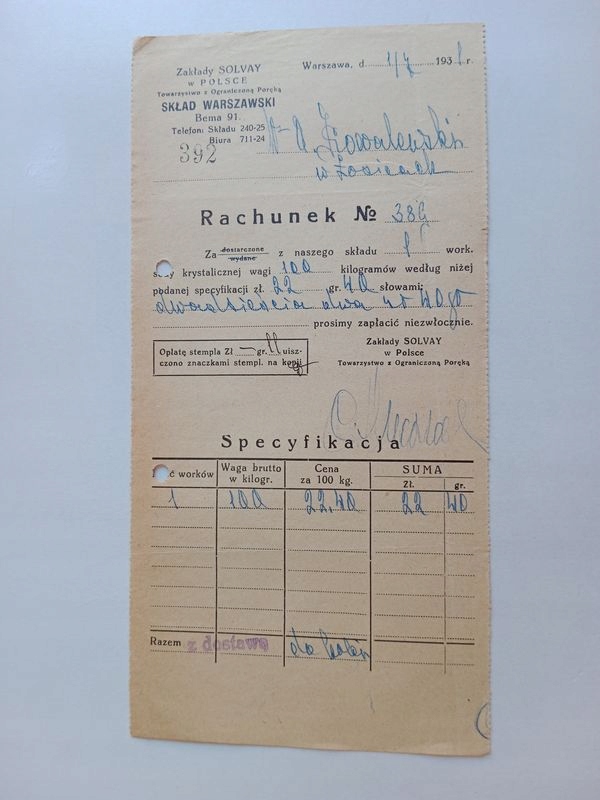 Zakłady SOLVAY
w POLSCE
Towarzystwo z Ograniczoną Poręką
SKŁAD WARSZAWSKI
Bema 91.
Telefon: Składu 240-25
Biura 711-24
392
Warszawa, d. 1/7 1938 r.
Kowalewski
w Łosicach
Rachunek № 386
Za dostarczone wydane z naszego składu 1 work.
sody krystalicznej wagi 100 kilogramów według niżej
podanej specyfikacji zł. 22 gr. 40 słowami:
dwadzieścia dwa zł 40 gr
prosimy zapłacić niezwłocznie.
Opłatę stempla Zł — gr. uisz-
czono znaczkami stempl. na kopji
Zakłady SOLVAY
w Polsce
Towarzystwo z Ograniczoną Poręką
Specyfikacja
Ilość worków Waga brutto w kilogr. Cena za 100 kg. SUMA Zł. gr.
1 100 22,40 22 40
Razem z dostawą do kolei